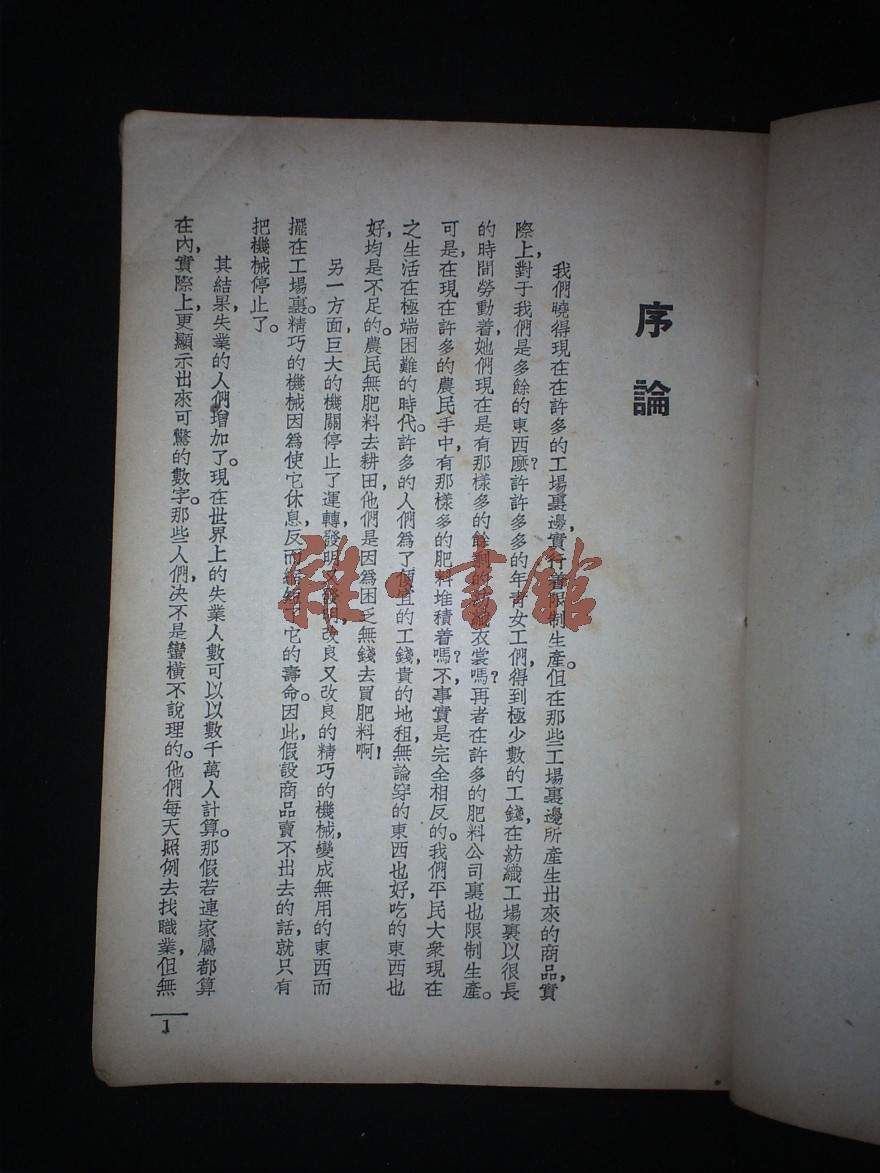 序論
我們曉得現在在許多的工場裏邊，實行着限制生產。但在那些工場裏邊所產生出來的商品，實
際上，對于我們是多餘的東西麽？許許多多的年青女工們，得到極少數的工錢，在紡織工場裏以很長
的時間勞動着，她們現在是有那樣多的餘剩的衣裳嗎？再者在許多的肥料公司裏也限制生產。
可是，在現在許多的農民手中，有那樣多的肥料堆積着嗎？不，事實是完全相反的。我們平民大衆現在
之生活在極端困難的時代。許多的人們爲了便宜的工錢，貴的地租，無論穿的東西也好，吃的東西也
好，均是不足的。農民無肥料去耕田，他們是因爲困乏無錢去買肥料啊！
另一方面，巨大的機關停止了運轉，發明又發明，改良又改良的精巧的機械，變成無用的東西而
擺在工場裏。精巧的機械因爲使它休息，反而縮短了它的壽命。因此，假設商品賣不出去的話，就只有
把機械停止了。
其結果，失業的人們增加了。現在世界上的失業人數可以以數千萬人計算。那假若連家屬都算
在內，實際上，更顯示出來可驚的數字。那些人們，决不是蠻橫不說理的。他們每天照例去找職業，但無
1
雜·書館